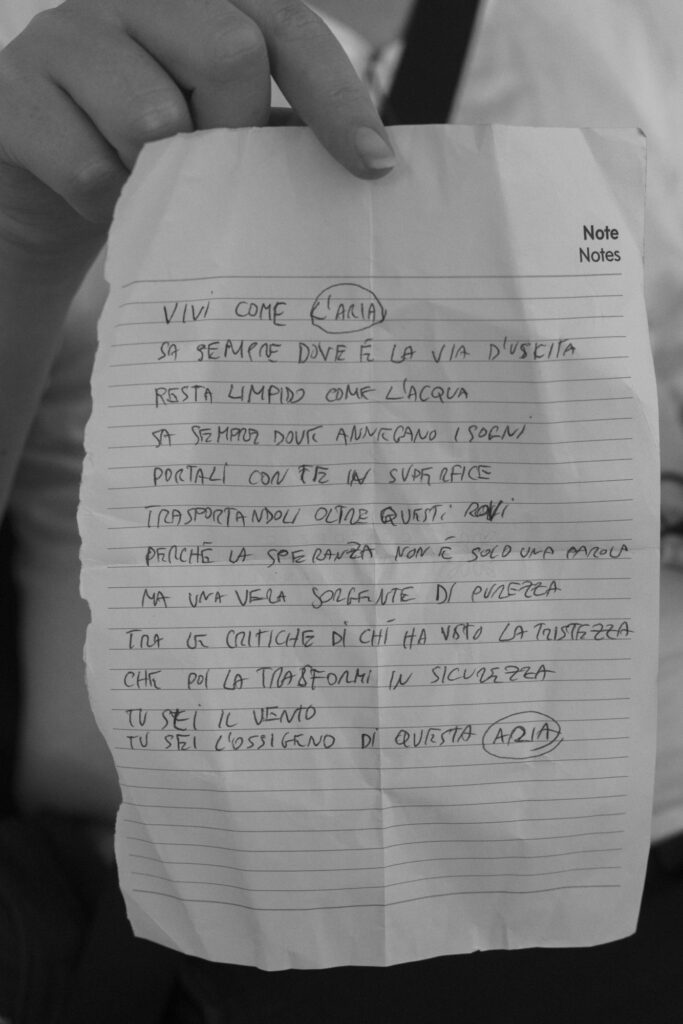 Note
Notes
VIVI COME L'ARIA
SA SEMPRE DOVE È LA VIA D'USCITA
RESTA LIMPIDO COME L'ACQUA
SA SEMPRE DOVE ANNEGANO I SOGNI
PORTALI CON TE IN SUPERFICE
TRASPORTANDOLI OLTRE QUESTI ROVI
PERCHÉ LA SPERANZA NON È SOLO UNA PAROLA
MA UNA VERA SORGENTE DI PUREZZA
TRA LE CRITICHE DI CHI HA VISTO LA TRISTEZZA
CHE POI LA TRASFORMI IN SICUREZZA
TU SEI IL VENTO
TU SEI L'OSSIGENO DI QUESTA ARIA